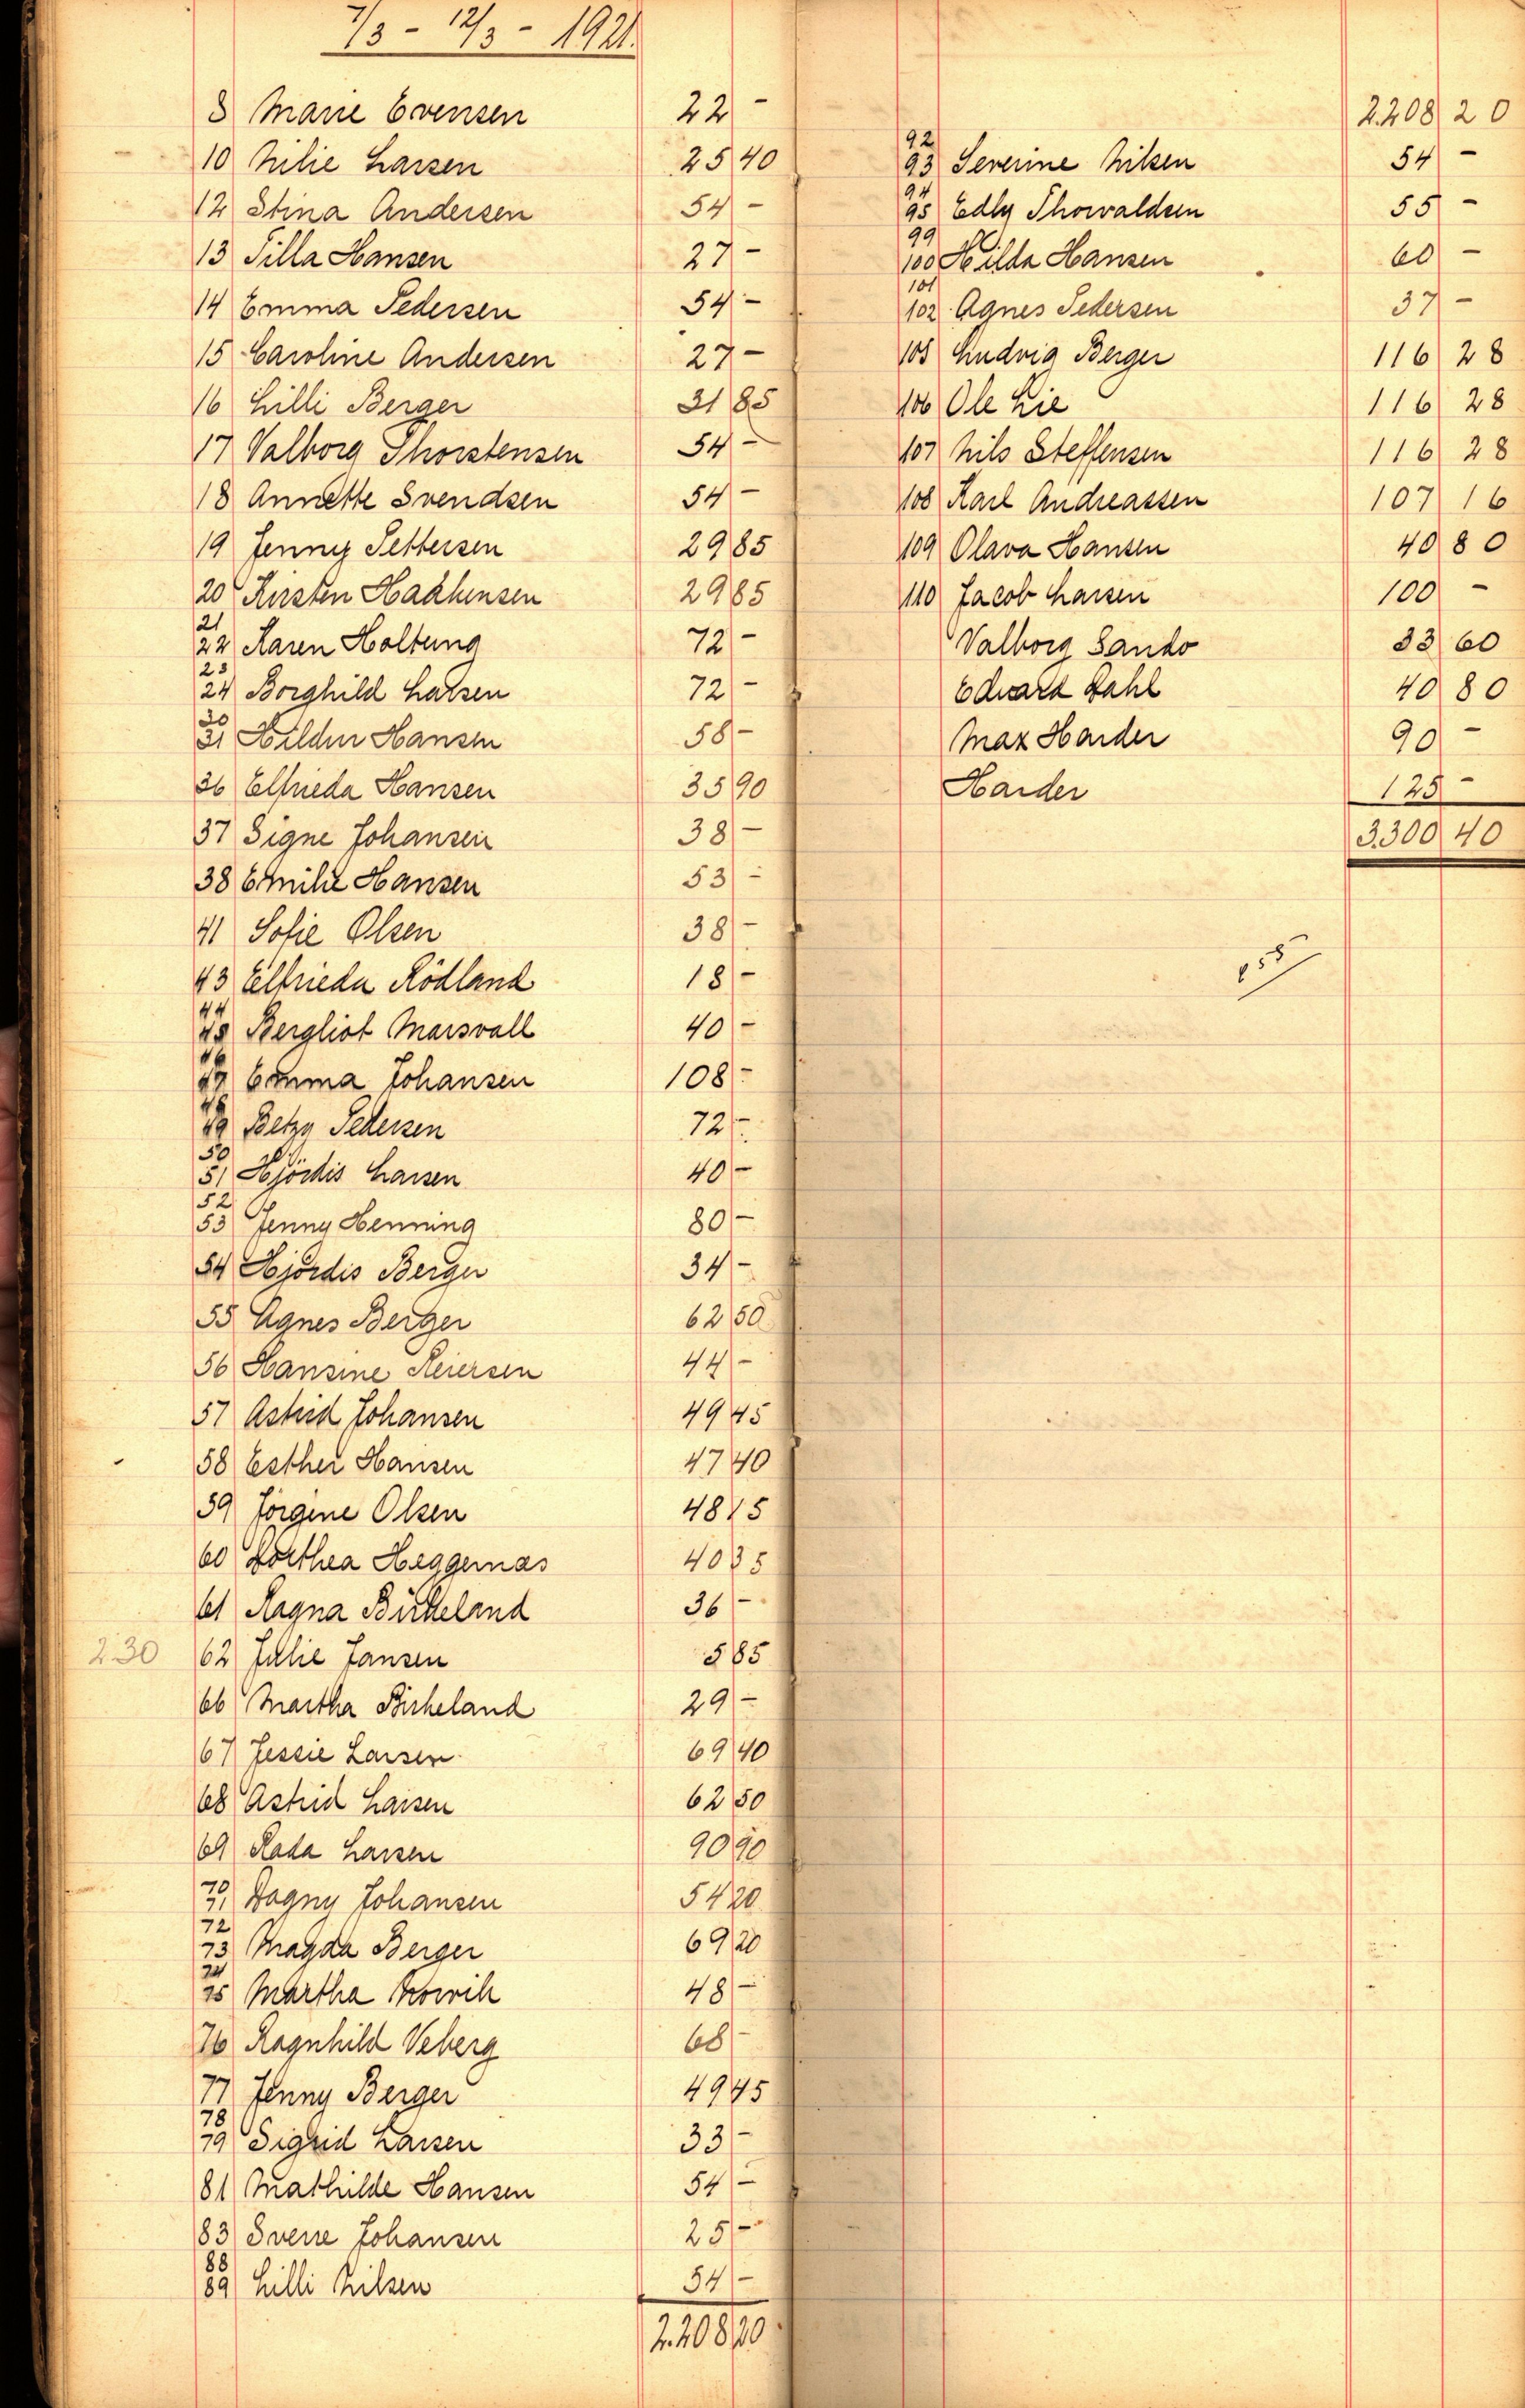 7/3 - 12/3 - 1921.
8 Marie Evensen 22 -
10 Milie Larsen 25 40
12 Stina Andersen 54 -
13 Tilla Hansen 27 -
14 Emma Pedersen 54 -
15 Caroline Andersen 27 -
16 Lilli Berger 31 85
17 Valborg Thorstensen 54 -
18 Annette Svendsen 54 -
19 Jenny Pettersen 29 85
20 Kirsten Haakensen 29 85
21
22 Karen Holtung 72 -
23
24 Borghild Larsen 72 -
30
31 Hildur Hansen 58 -
36 Elfrieda Hansen 35 90
37 Signe Johansen 38 -
38 Emilie Hansen 53 -
41 Sofie Olsen 38 -
43 Elfrieda Rödland 18 -
44
45 Bergliot Marsvall 40 -
46
47 Emma Johansen 108 -
48
49 Betzy Pedersen 72 -
50
51 Hjördis Larsen 40 -
52
53 Jenny Henning 80 -
54 Hjördis Berger 34 -
55 Agnes Berger 62 50
56 Hansine Reiersen 44 -
57 Astrid Johansen 49 45
58 Esther Hansen 47 40
59 Jörgine Olsen 48 15
60 Dorthea Heggernas 40 35
61 Ragna Birkeland 36 -
2.30 62 Julie Jansen 5 85
66 Martha Birkeland 29 -
67 Jessie Larsen 69 40
68 Astrid Larsen 62 50
69 Rada Larsen 90 90
70
71 Dagny Johansen 54 20
72
73 Magda Berger 69 20
74
75 Martha 48 -
76 Ragnhild Veberg 68 -
77 Jenny Berger 49 45
78
79 Sigrid Larsen 33 -
81 Mathilde Hansen 54 -
83 Sverre Johansen 25 -
88
89 Lilli Nilsen 54 -
2.208 20
2.208 20
92
93 Severine Nilsen 54 -
94
95 Edly Thorvaldsen 55 -
99
100 Hilda Hansen 60 -
101
102 Agnes Pedersen 37 -
105 Ludvig Berger 116 28
106 Ole Lie 116 28
107 Nils Steffensen 116 28
108 Karl Andreassen 107 16
109 Olava Hansen 40 80
110 Jacob Larsen 100 -
Valborg Sando 33 60
Edvard Dahl 40 80
Max Harder 90 -
Harder 125 -
3.300 40